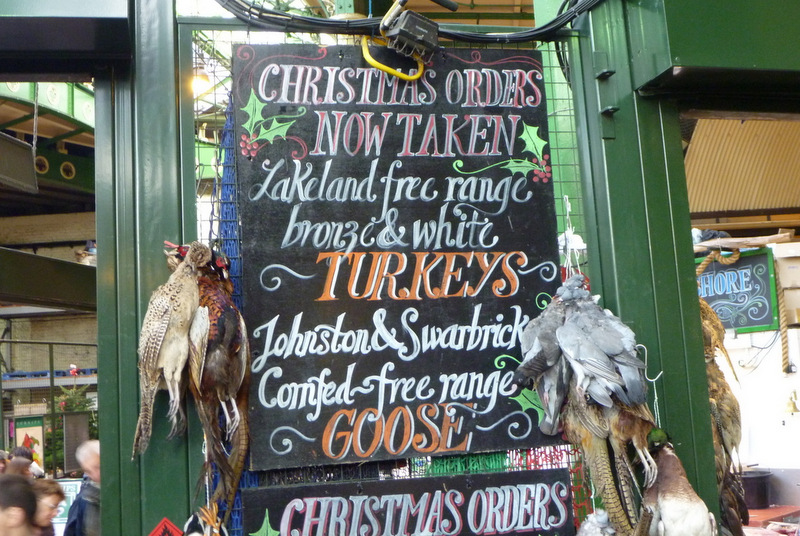 CHRISTMAS ORDERS
NOW TAKEN
Lakeland free range
bronze & white
TURKEYS
Johnston & Swarbrick
Cornfed~free range
GOOSE
CHRISTMAS ORDERS
HORE